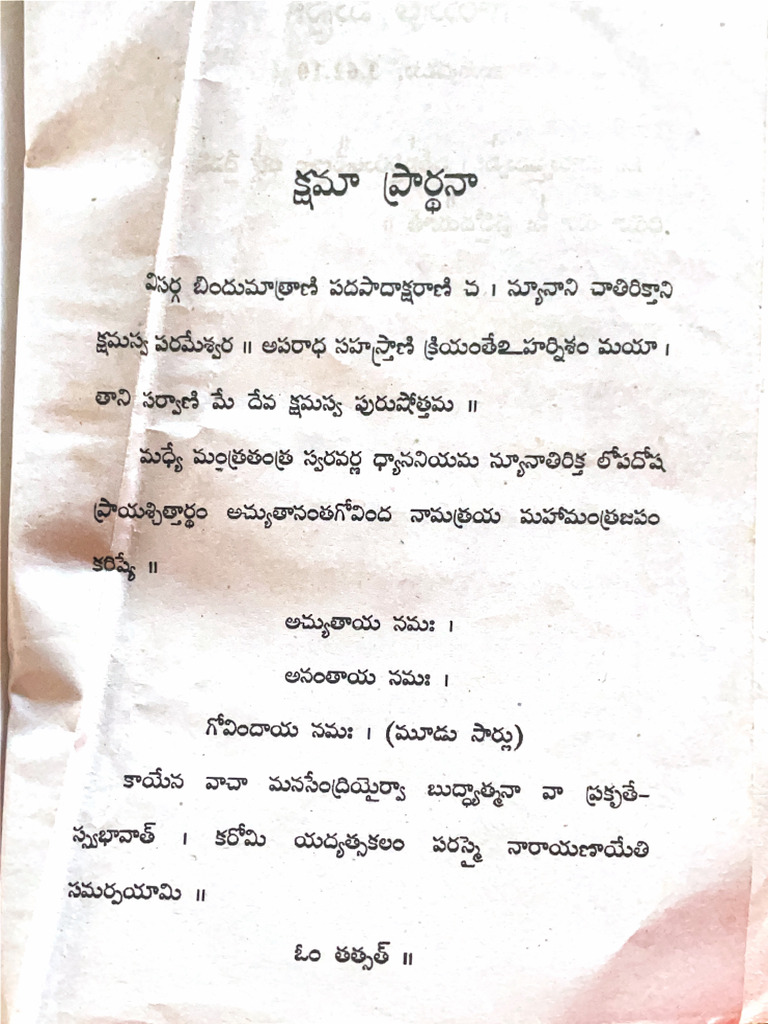 క్షమా ప్రార్థనా
విసర్గ బిందుమాత్రాణి పదపాదాక్షరాణి చ । న్యూనాని చాతిరిక్తాని
క్షమస్వ పరమేశ్వర ॥ అపరాధ సహస్త్రాణి క్రియంతేఽహర్నిశం మయా ।
తాని సర్వాణి మే దేవ క్షమస్వ పురుషోత్తమ ॥
మధ్యే మంత్రతంత్ర స్వరవర్ణ ధ్యాననియమ న్యూనాతిరిక్త లోపదోష
ప్రాయశ్చిత్తార్థం అచ్యుతానంతగోవింద నామత్రయ మహామంత్రజపం
కరిష్యే ॥
అచ్యుతాయ నమః ।
అనంతాయ నమః ।
గోవిందాయ నమః । (మూడు సార్లు)
కాయేన వాచా మనసేంద్రియైర్వా బుద్ధ్యాత్మనా వా ప్రకృతే-
స్స్వభావాత్ । కరోమి యద్యత్సకలం పరస్మై నారాయణాయేతి
సమర్పయామి ॥
ఓం తత్సత్ ॥